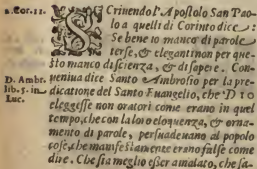 2.Cor.11.
SCrinendo l'Apostolo San Pao-
lo a quelli di Corinto dice:
Se bene io manco di parole
terse, & eleganti non per que-
sto manco di scienza, & di sapere. Con-
D. Ambr.
lib. 5. in
Luc.
ueniua dice Santo Ambrosio per la pre-
dicatione del Santo Euangelio, che DIO
eleggesse non oratori come erano in quel
tempo, che con la loro eloquenza, & orna-
mento di parole, persuadeuano al popolo
cose, che manifestamente erano false come
dire. Che sia meglio esser amalato, che sa-